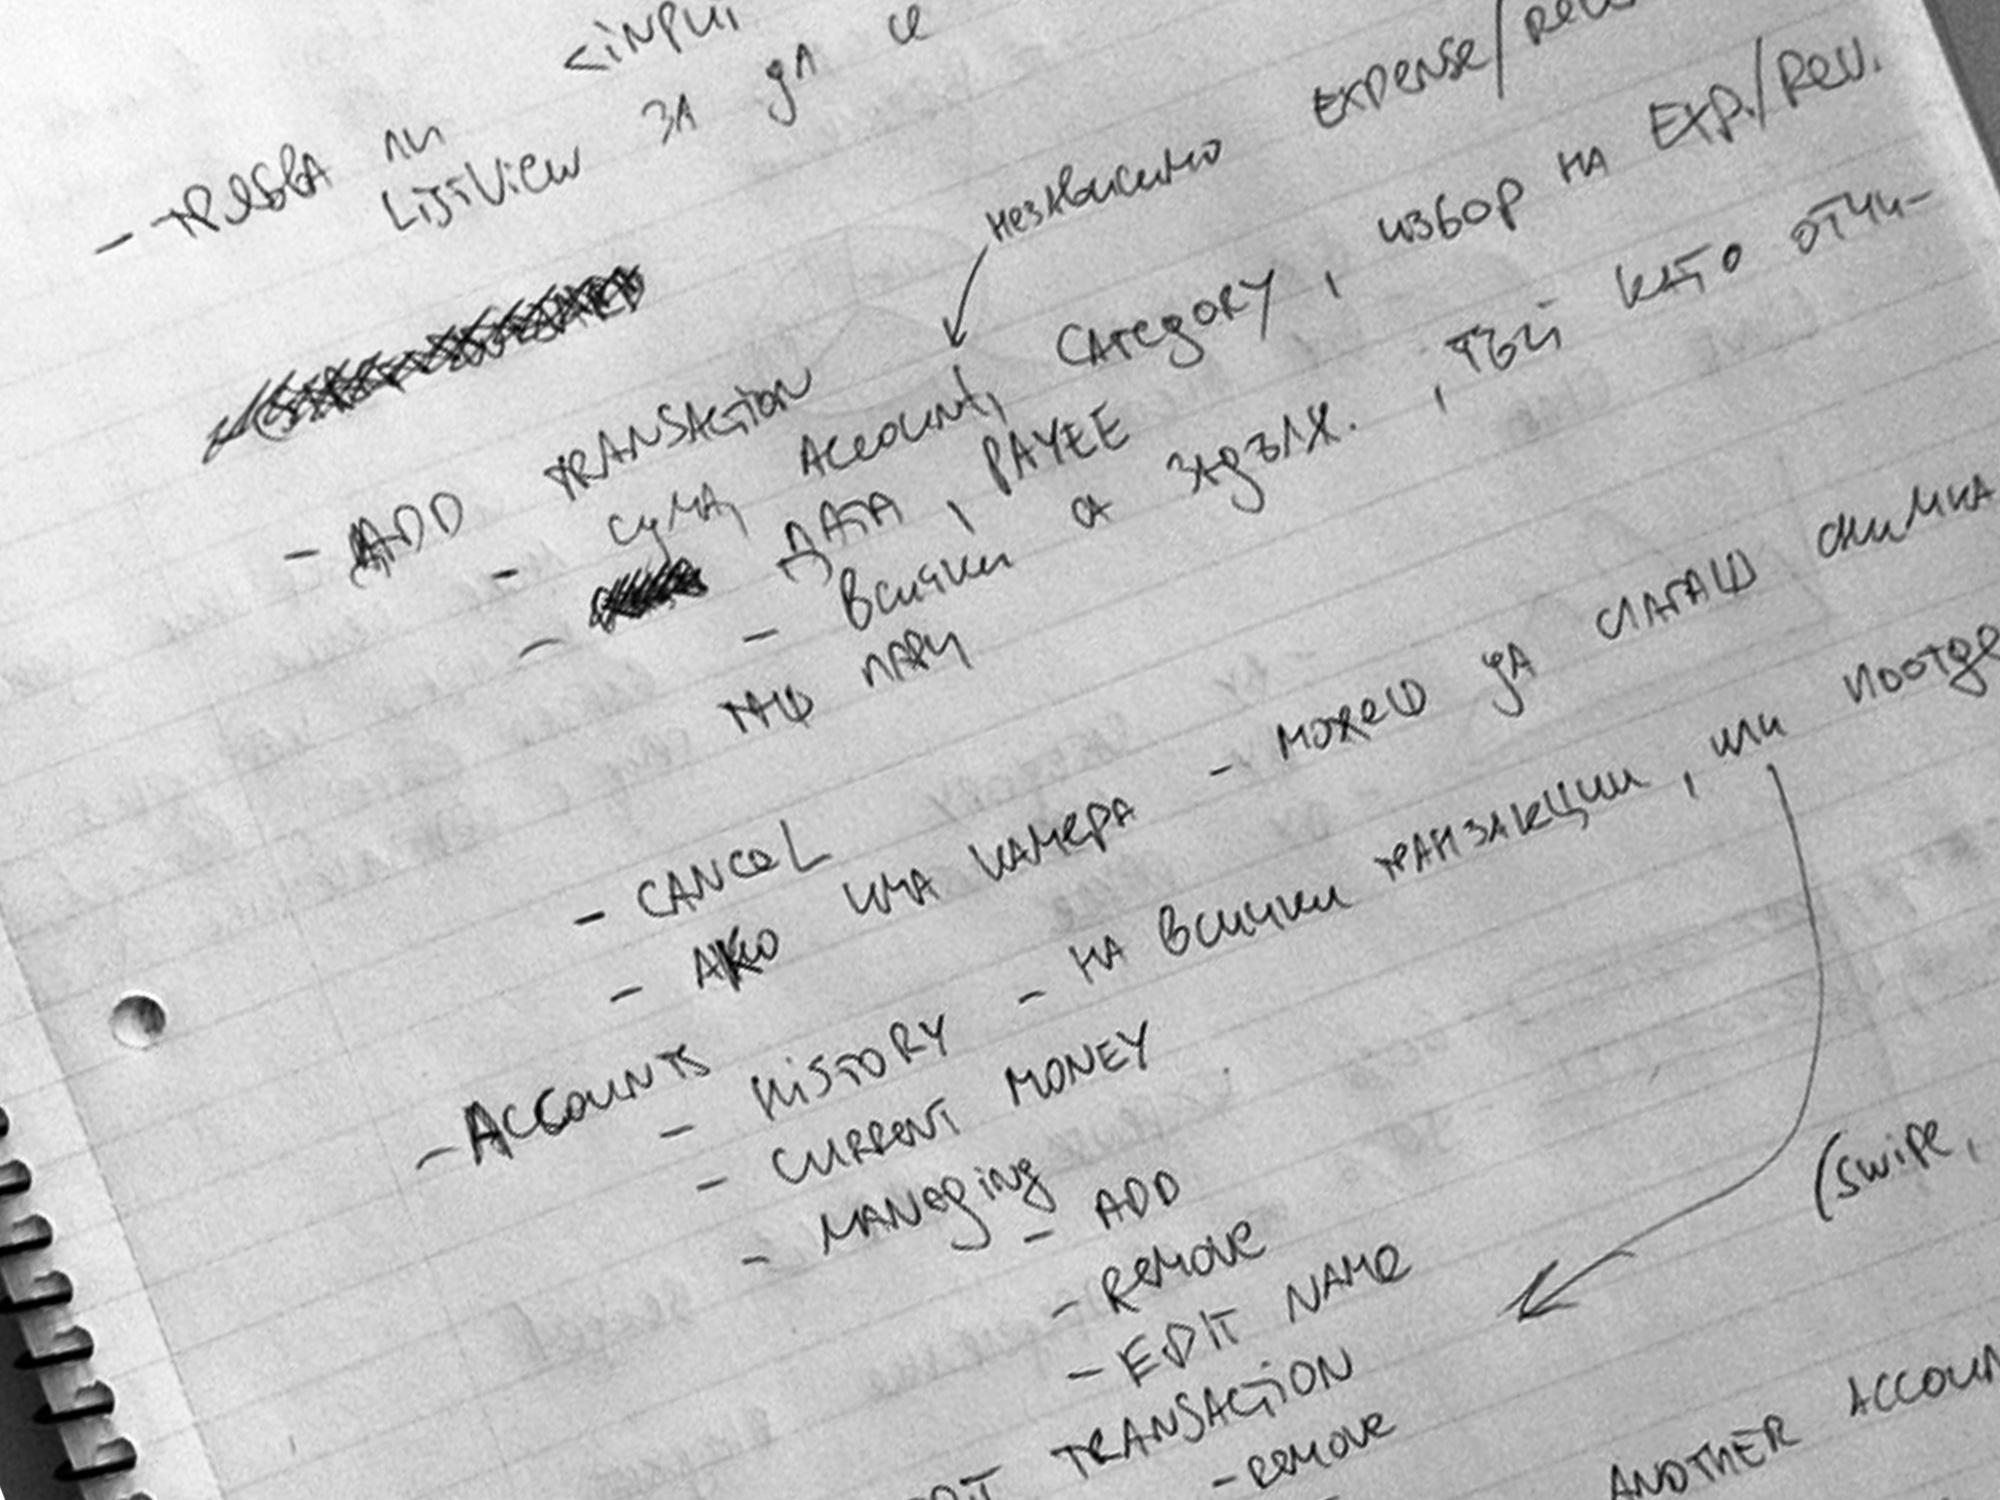 - трябва ли <input
ListView за да се
незвисимо EXPENSE/
- ADD TRANSACTION
- сума, Account, CATegORY, избор на EXP./Rev.
- ДАТА, PAYEE
- всички са задълж., тъй като отчи-
таш пари
- CANCEL
- Ако има камера - можеш да слагаш снимка
- Accounts
- HISTORY - на всички транзакции, или поотде
- CURRENT MONEY
- MANAging
- ADD
- Remove
- EDIT NAMe
(swipe,
TRANSACTION
- Remove
ANOTHER ACCOUN